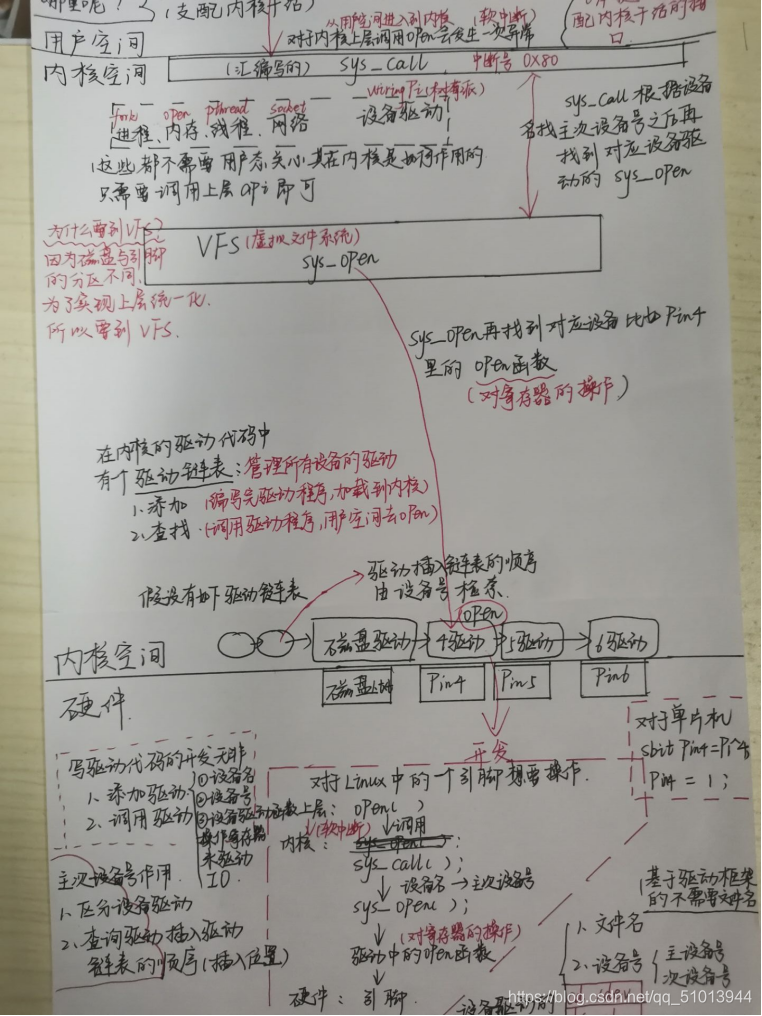 哪里呢？
(支配内核干活)
从用户空间进入到内核 (软中断)
对于内核上层调用open会发生一次异常
配内核干活的接口.
用户空间
内核空间
(汇编写的) sys_call 中断号 0X80
fork open pthread socket wiringPi(树莓派)
进程、内存、线程、网络 设备驱动
这些都不需要用户态关心其在内核是如何作用的
只需要调用上层api即可
sys_call 根据设备
名找主次设备号之后再
找到对应设备驱
动的 sys_open
为什么要到VFS?
因为磁盘与引脚
的分区不同,
为了实现上层统一化.
所以要到 VFS.
VFS(虚拟文件系统)
sys_open
sys_open再找到对应设备比如 Pin4
里的 open函数
(对寄存器的操作)
在内核的驱动代码中
有个驱动链表:管理所有设备的驱动
1.添加 (编写完驱动程序,加载到内核)
2.查找.(调用驱动程序,用户空间去open)
驱动插入链表的顺序
由设备号检索.
假设有如下驱动链表
open
磁盘驱动 4驱动 5驱动 6驱动
内核空间
Pin4 Pin5 Pin6
硬件.
开发
写驱动代码的开发无非
1.添加驱动
2.调用驱动
①设备名
②设备号
③设备驱动函数
操作寄存器
来驱动
IO.
对于单片机
sbit Pin4=P1^4;
Pin4 = 1;
对于Linux中的一个引脚想要操作.
上层: open( )
(软中断) 调用
内核: sys_open( );
sys_call( );
设备名→主次设备号
sys_open( );
(对寄存器的操作)
驱动中的open函数
硬件: 引脚
主次设备号作用.
1.区分设备驱动
2.查询驱动插入驱动
链表的顺序(插入位置)
基于驱动框架
的不需要文件名
1.文件名
2.设备号 主设备号
次设备号
设备驱动的
https://blog.csdn.net/qq_51013944